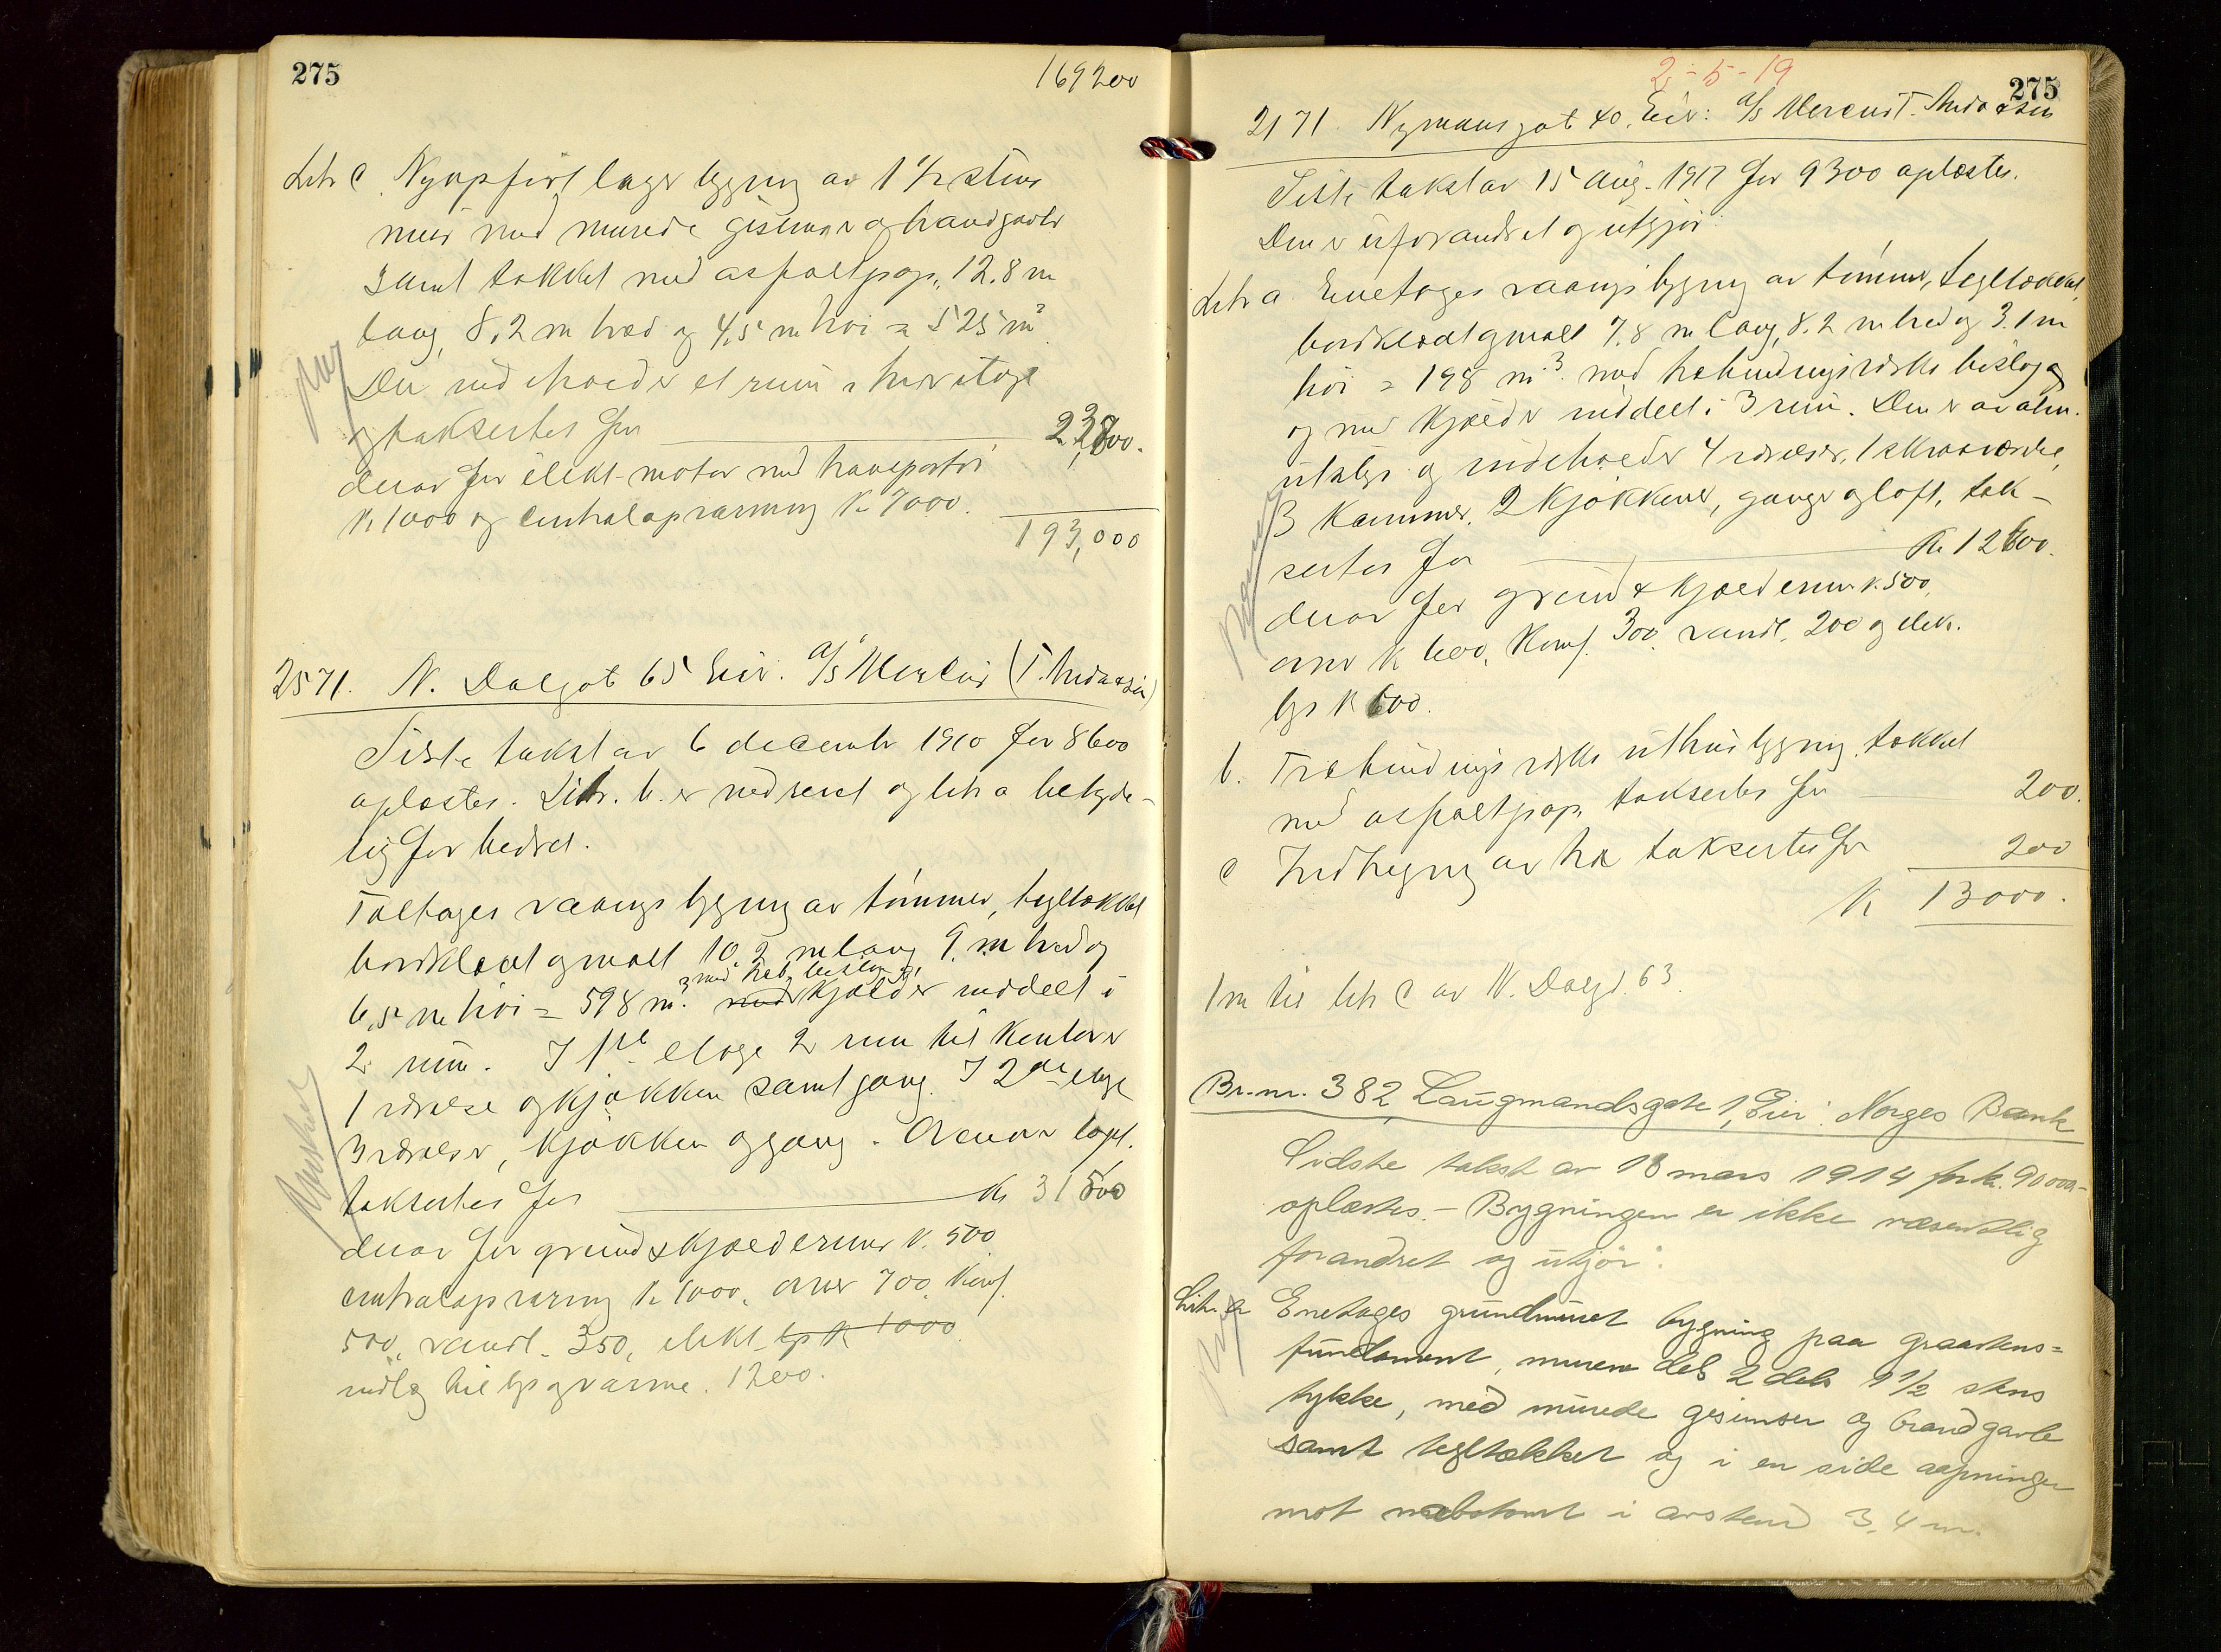 275
169200
Litr c. Nyopført lagerbygning av 1 1/2 stens
mur med murede gesimser og brandgavler
samt tækket med asfaltpap, 12.8 m
lang, 8.2 m bred og 4,5 m høi = 525 m3
Den indeholder et rum i hver etage
og taksertes for 23,800.
derav for elekt. motor med transportør
K 1000 og centralopvarming K 7000.
193,000
2571. N. Dalgat 65 Eier: A/s Mercur (T. Anda & søn)
Siste takst av 6 decembr 1910 for 8600
oplæstes. Litr. b. er nedrevet og litr a betyde-
lig forbedret.
Toetages vaaningsbygning av tømmer, tegltækket
bordklædt og malt 10.2 m lang 9. m bred og
med beb. beslag og
6,5 m høi = 598 m3. med kjælder inddelt i
2 rum. I 1ste etage 2 rum til kontorer
1 værelse og kjøkken samt gang. I 2den etage
3 værelser, kjøkken og gang. Ovenover loft.
taksertes for Kr 31500
derav for grund & kjældermur K. 500
centralopvarming K 1000, ovner 700, Komf.
500, vandl. 350, elekt. lys K 1000
indlæg til lys og varme. 1200.
2-5-19
275
2171. Nymansgat 40. Eier: A/s Mercur T. Anda & søn
Siste takst av 15 Aug. 1917 for 9300 oplæstes.
Den er uforandret og utgjør:
Litr a. Enetages vaaningsbygning av tømmer, tegltækket,
bordklædt og malt 7.8 m lang, 8.2 m bred og 3.1 m
høi = 198 m3. med bebudningsværks beslag
og med kjælder inddelt i 3 rum. Den er av alm.
utstyr og indeholder 4 værelser, 1 skraaværelse,
3 kammer. 2 kjøkkener, gange og loft, tak-
sertes for Kr 12600.
derav for grund & kjældermur K. 500,
ovner K 600, Komf. 300, vandl. 200 og elek.
lys K 600.
b. Trebindingsværks uthusbygning, tækket
med asfaltpap, taksertes for 200.
c Indhegning av træ taksertes for 200
K 13000.
1 m til litr c av N. Dalgt. 63.
Br.-nr. 382, Laugmandsgate 1, Eier: Norges Bank
Sidste takst av 18 mars 1914 for kr. 90000,-
oplæstes. - Bygningen er ikke væsentlig
forandret og utgjør:
Litr. a Enetages grundmuret bygning paa graastens=
fundament, murene dels 2 dels 1 1/2 stens
tykke, med murede gesimser og brandgavle
samt tegltækket og i en side aapninger
mot nabotomt i avstand 3,4 m.